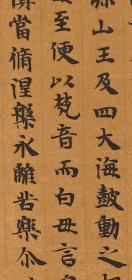 山王及四大海鼓動之
至便以梵音而白毋言
當脩涅槃永離苦樂尒